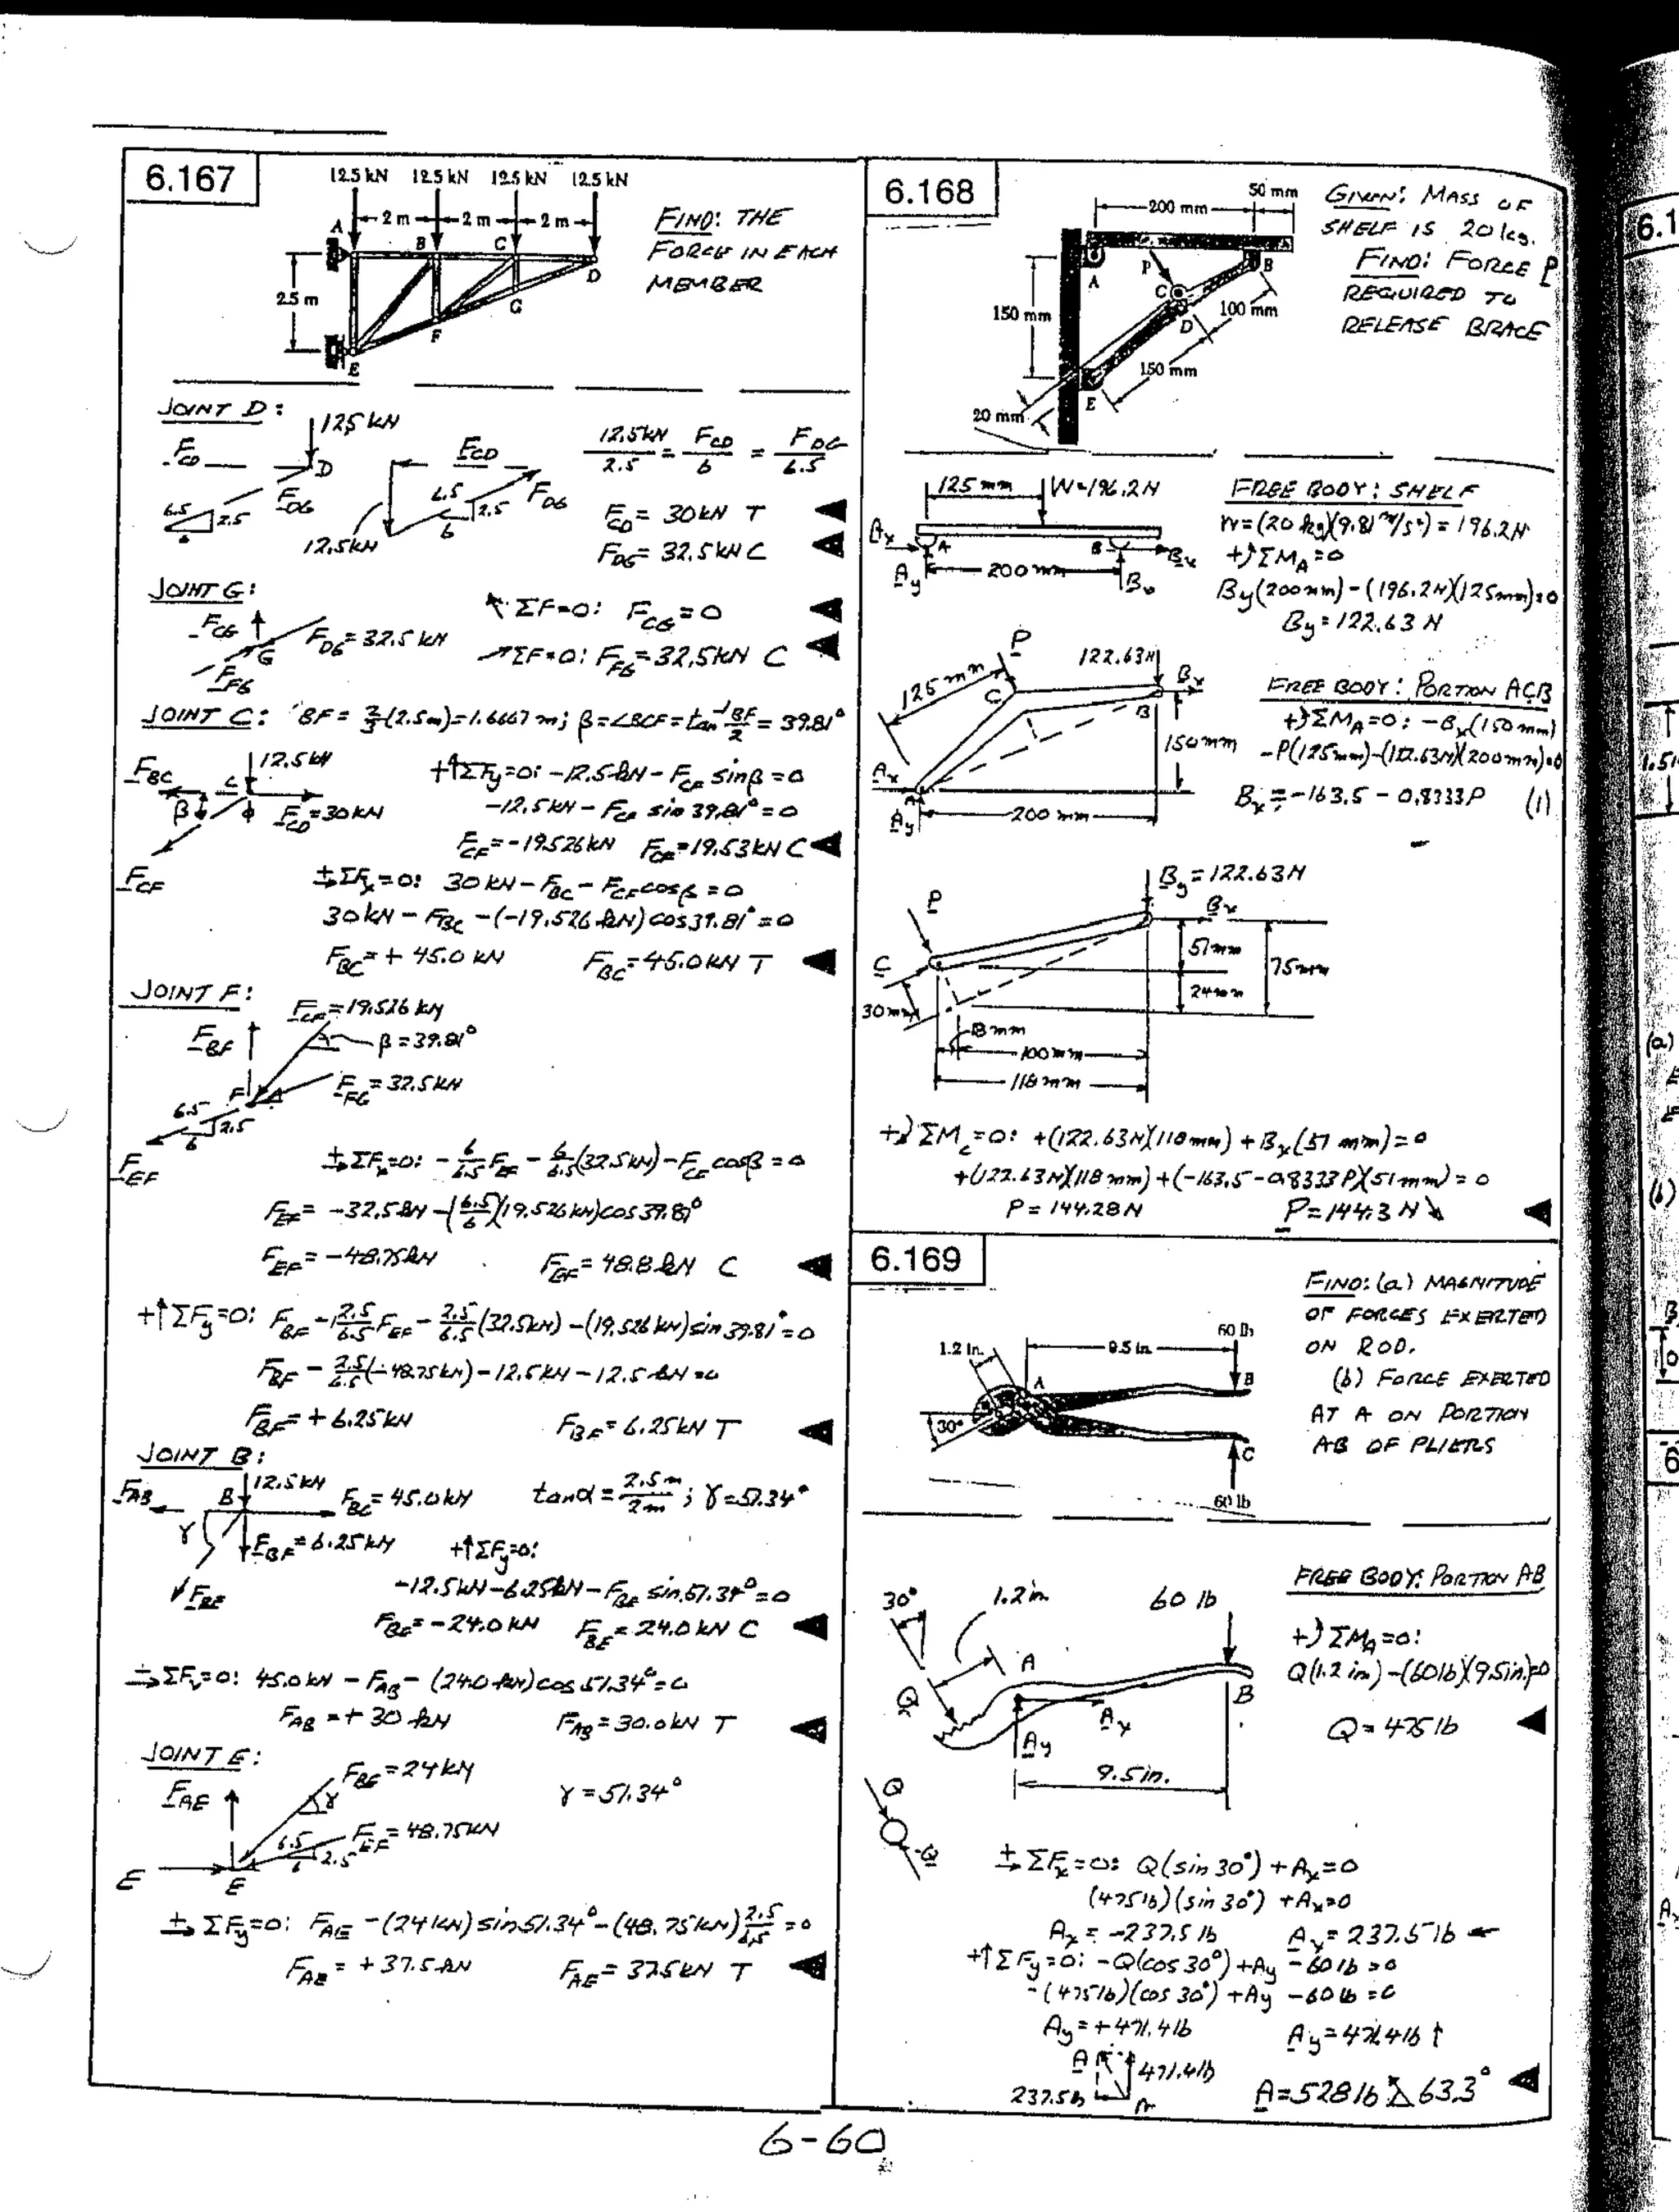 6.167
12.5 kN 12.5 kN 12.5 kN 12.5 kN
2 m 2 m 2 m
A B C D
2.5 m
G
F
E
FIND: THE
FORCE IN EACH
MEMBER
JOINT D:
12.5 kN
F_CD D
F_DG
6.5 2.5
6
F_CD
6.5 2.5 F_DG
6
12.5kN
12.5kN/2.5 = F_CD/6 = F_DG/6.5
F_CD = 30kN T
F_DG = 32.5kN C
JOINT G:
F_CG
G F_DG = 32.5 kN
F_FG
ΣF=0: F_CG = 0
ΣF=0: F_FG = 32.5kN C
JOINT C: BF = 2/3(2.5m)=1.6667 m; β=∠BCF=tan⁻¹ BF/2 = 39.81°
F_BC C 12.5 kN
β F_CD = 30kN
F_CF
+↑ΣFy=0: -12.5kN - F_CF sinβ = 0
-12.5kN - F_CF sin 39.81° = 0
F_CF = -19.526kN F_CF = 19.53kN C
ΣFx=0: 30 kN - F_BC - F_CF cosβ = 0
30kN - F_BC - (-19.526 kN) cos39.81° = 0
F_BC = + 45.0 kN F_BC = 45.0kN T
JOINT F:
F_CF = 19.526 kN
F_BF β = 39.81°
F F_FG = 32.5kN
6.5 2.5
6
F_EF
ΣFx=0: - 6/6.5 F_EF - 6/6.5 (32.5kN) - F_CF cosβ = 0
F_EF = -32.5kN - (6.5/6)(19.526kN)cos39.81°
F_EF = -48.75kN F_EF = 48.8kN C
+↑ΣFy=0: F_BF - 2.5/6.5 F_EF - 2.5/6.5 (32.5kN) - (19.526 kN) sin 39.81° = 0
F_BF - 2.5/6.5 (-48.75kN) - 12.5kN - 12.5kN = 0
F_BF = + 6.25kN F_BF = 6.25kN T
JOINT B:
F_AB B 12.5kN F_BC = 45.0kN tanα = 2.5m/2m ; γ = 51.34°
γ F_BF = 6.25kN +↑ΣFy=0:
F_BE
-12.5kN - 6.25kN - F_BE sin 51.34° = 0
F_BE = -24.0 kN F_BE = 24.0 kN C
ΣFx=0: 45.0kN - F_AB - (24.0 kN) cos 51.34° = 0
F_AB = + 30 kN F_AB = 30.0kN T
JOINT E:
F_BE = 24kN
F_AE γ γ = 51.34°
6.5 2.5 F_EF = 48.75kN
6
E E
ΣFy=0: F_AE - (24kN) sin51.34° - (48.75kN) 2.5/6.5 = 0
F_AE = + 37.5 kN F_AE = 37.5kN T
6.168
50 mm
200 mm
P
A B
C
150 mm
D
100 mm
150 mm
E
20 mm
GIVEN: MASS OF
SHELF IS 20kg.
FIND: FORCE P
REQUIRED TO
RELEASE BRACE
125 mm W=196.2N
Ax A B Bx
Ay 200mm By
FREE BODY: SHELF
W=(20 kg)(9.81 m/s²) = 196.2N
+ΣM_A=0
By(200mm) - (196.2N)(125mm)=0
By = 122.63 N
P
122.63N
125 mm C Bx
B
150mm
Ax A
Ay 200 mm
FREE BODY: PORTION ACB
+ΣM_A=0: -Bx(150 mm)
-P(125mm)-(122.63N)(200mm)=0
Bx = -163.5 - 0.8333P (1)
By = 122.63N
P Bx
C 51mm 75mm
24mm
30mm
18mm
100mm
118mm
+ΣM_C=0: +(122.63N)(118mm) + Bx(51 mm) = 0
+(122.63N)(118mm) + (-163.5 - 0.8333P)(51mm) = 0
P = 144.28N P = 144.3 N
6.169
60 lb
1.2 in. 9.5 in.
A B
30°
C
60 lb
FIND: (a) MAGNITUDE
OF FORCES EXERTED
ON ROD.
(b) FORCE EXERTED
AT A ON PORTION
AB OF PLIERS
30° 1.2in. 60 lb
A
Q B
Ax
Ay
9.5in.
Q
-Q
FREE BODY: PORTION AB
+ΣM_A=0:
Q(1.2 in) - (60lb)(9.5in)=0
Q = 475 lb
ΣFx=0: Q(sin 30°) + Ax = 0
(475lb)(sin 30°) + Ax = 0
Ax = -237.5 lb Ax = 237.5 lb ←
+↑ΣFy=0: -Q(cos 30°) + Ay - 60 lb = 0
-(475lb)(cos 30°) + Ay - 60 lb = 0
Ay = +471.4lb Ay = 471.4lb ↑
A 471.4lb
237.5lb
A = 528 lb 63.3°
6-60
6.1
(a)
(b)